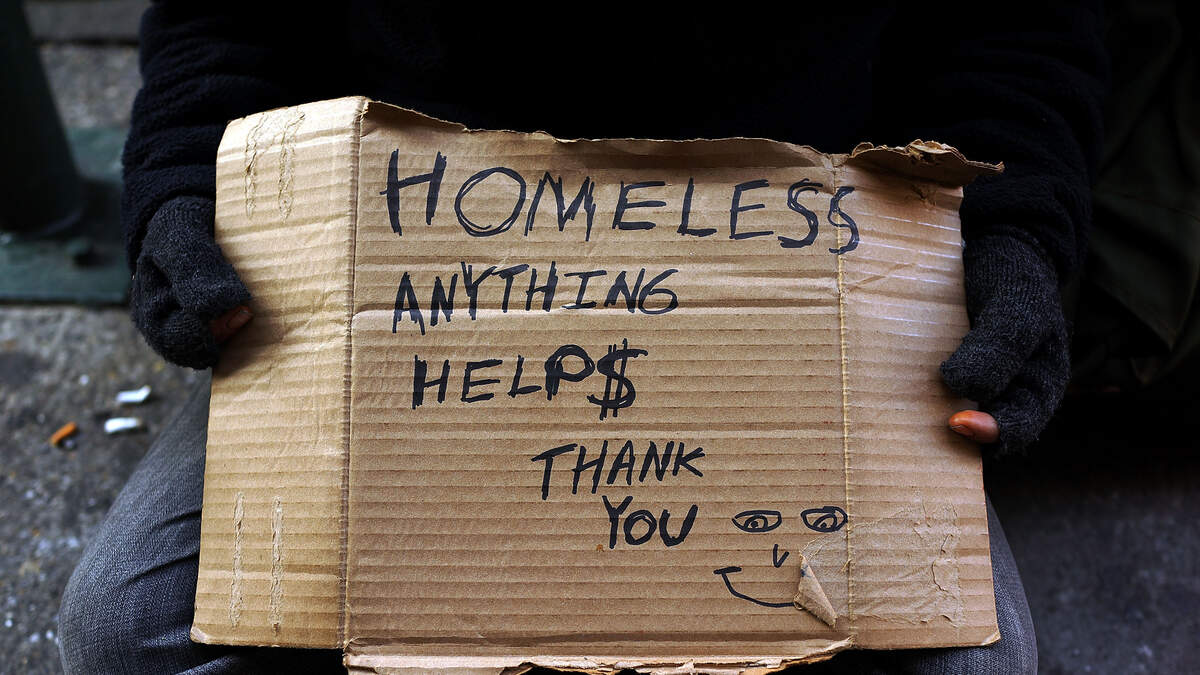 HOMELESS
ANYTHING
HELP$
THANK
YOU